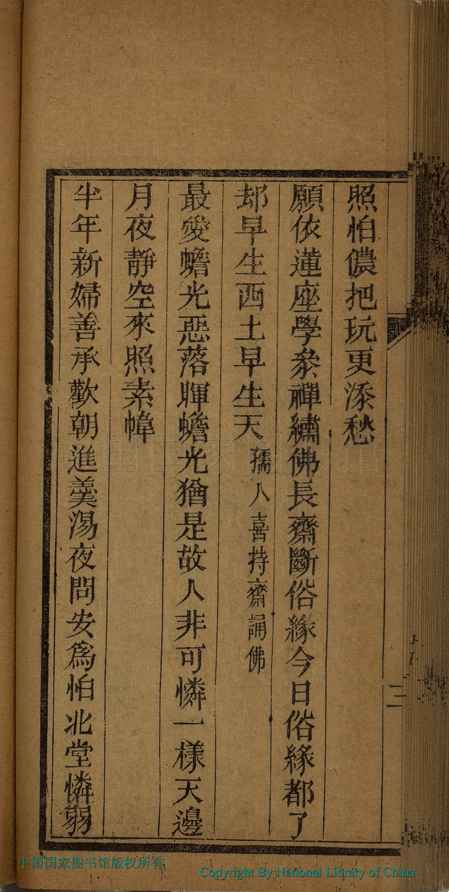 照怕儂把玩更添愁
願依蓮座學參禪繡佛長齋斷俗緣今日俗緣都了
却早生西土早生天孺人喜持齋誦佛
最愛蟾光惡落暉蟾光猶是故人非可憐一樣天邊
月夜靜空來照素幃
半年新婦善承歡朝進羹湯夜問安爲怕北堂憐弱
二
中国国家图书馆版权所有
Copyright By National Library of China